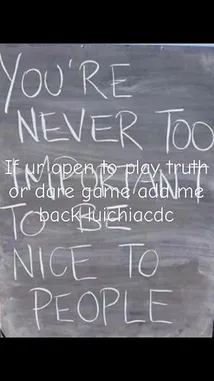 YOU'RE
NEVER TOO
IMPORTANT
TO BE
NICE TO
PEOPLE
If ur open to play truth
or dare game add me
back luichiacdc